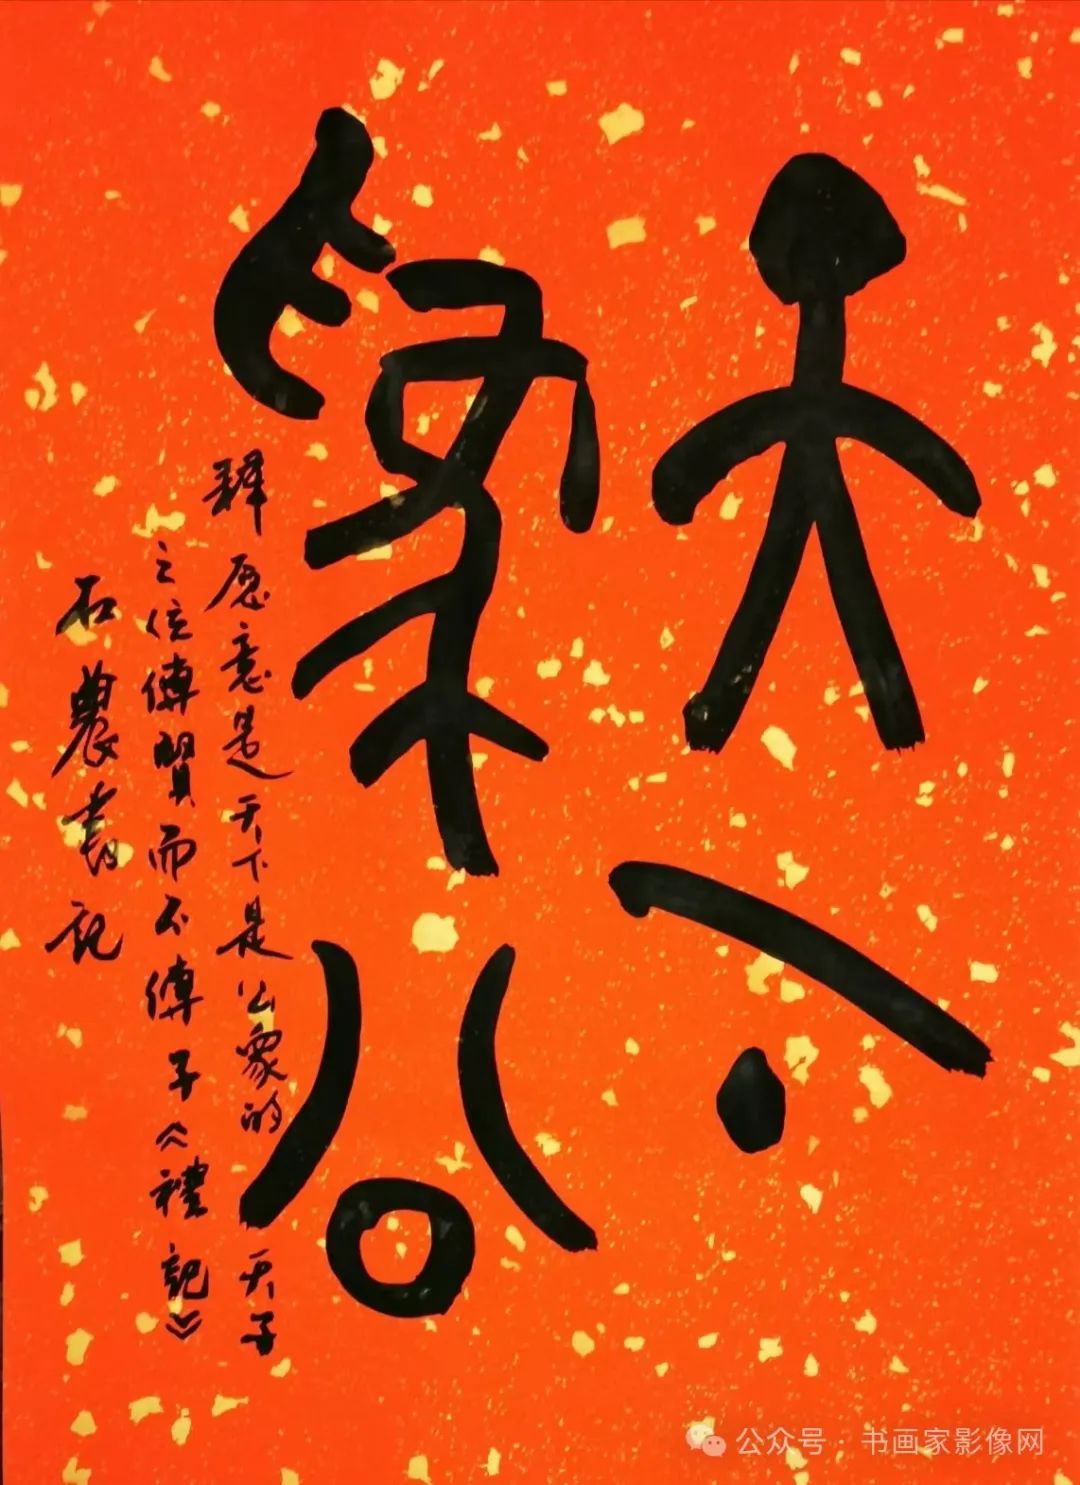 天下
為公
释原意是天下是公众的天子
之位傳賢而不傳子《禮記》
石農書記
公众号·书画家影像网